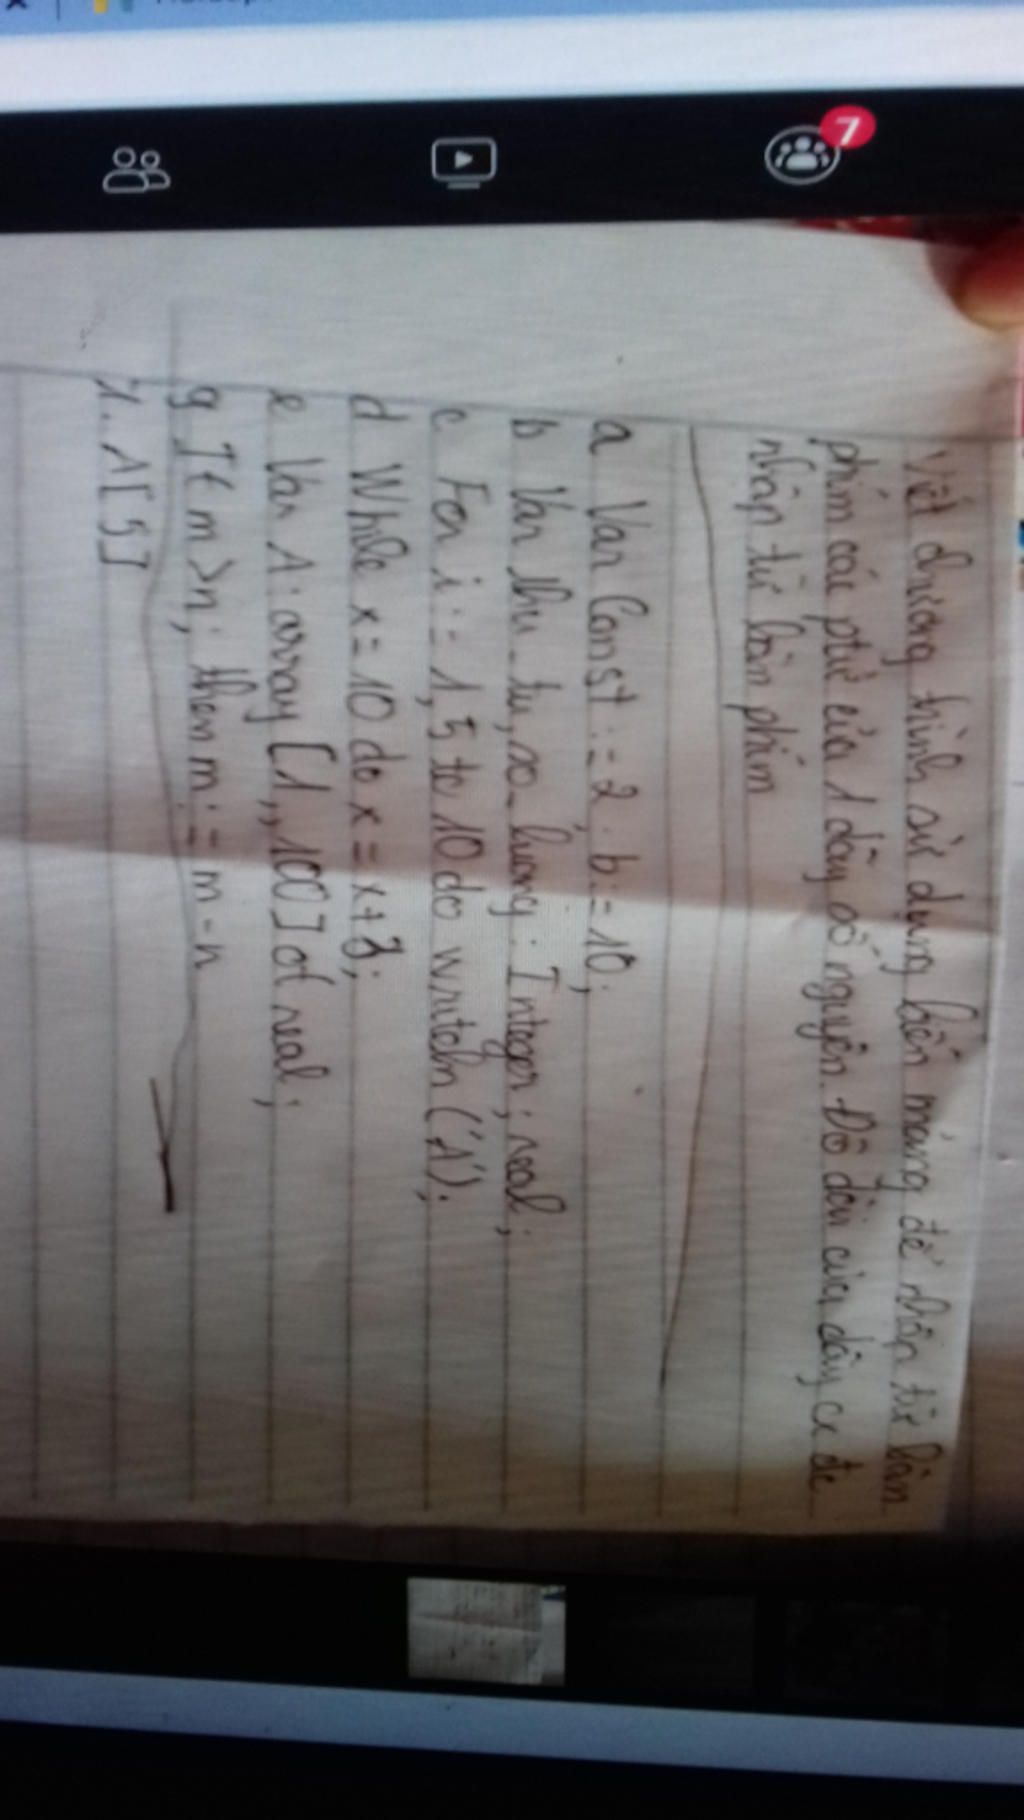 Viết chương trình sử dụng biến mảng để nhập từ bàn
phím các ptử của 1 dãy số nguyên. Độ dài của dãy cx đc
nhập từ bàn phím
a Var Const : = 2, b: = 10;
b Var thu_tu, so_luong : Integer; real;
c For i: = 1,5 to 10 do writeln ('1');
d While x = 10 do x = x+3;
e Var A: array [1,,100] of real;
g If m > n; then m: = m - n
A[5]
7